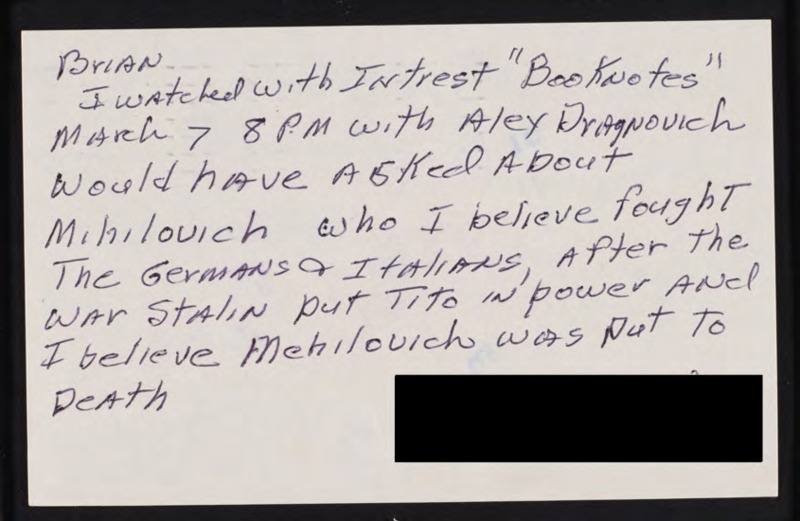 Brian
I watched with Intrest "Booknotes"
March 7 8 PM with Alex Dragnovich
Would have Asked About
Mihilovich who I believe fought
The Germans & Italians, After The
war Stalin put Tito in power And
I believe Mehilovich was put To
Death